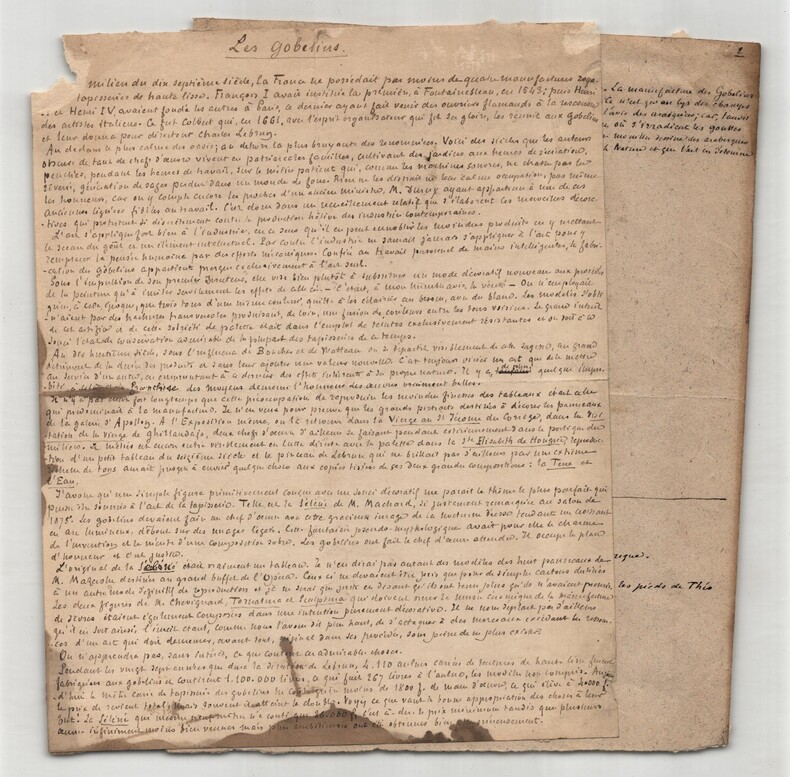 Les Gobelins.
milieu du dix septième siècle, la France ne possédait pas moins de quatre manufactures
tapisseries de haute lisse. François I avait institué la première, à Fontainebleau, en 1543; puis Henri
et Henri IV, avaient fondé les autres à Paris, ce dernier ayant fait venir des ouvriers flamands à la
des artistes italiens. Ce fut Colbert qui, en 1661, avec l'esprit organisateur qui fit sa gloire, les réunit aux gobelins
et leur donna pour directeur Charles Lebrun.
Au dedans le plus calme des oasis; au dehors la plus bruyante des renommées. Voici des siècles que les auteurs
obscurs de tant de chefs d'œuvre vivent en patriarcales familles, cultivant des jardins aux heures de
penchés, pendant les heures de travail, sur le métier patient qui, comme les machines
génération de sages perdue dans un monde de fous. Rien ne les distrait de leur calme occupation, pas même
les honneurs, car on y compte encore les proches d'un ancien ministre, M. Duruy ayant appartenu à une de ces
anciennes lignées fidèles au travail. C'est donc dans un recueillement relatif que s'élaborent ces merveilles
qui protestent si discrètement contre la production hâtive des industries contemporaines.
L'art s'applique fort bien à l'industrie, en ce sens qu'il en peut ennoblir les moindres produits en y mettant
le sceau du goût et un élément intellectuel. Par contre l'industrie ne saurait jamais s'appliquer à l'art pour y
remplacer la pensée humaine par des efforts mécaniques. Confiée au travail personnel de mains intelligentes, la
fabrication des gobelins appartient presque exclusivement à l'art seul.
Sous l'impulsion de son premier directeur, elle visa bien plutôt à substituer un mode décoratif nouveau aux procédés
de la peinture qu'à imiter servilement les effets de celle-ci. — C'était, à mon humble avis, la vérité — On n'employait
guère, à cette époque, que trois tons d'une même couleur, quitte à les éclaircir au besoin, avec du blanc. Les modelés
par des hachures transversales produisant, de loin, une fusion de couleurs entre les tons voisins. Le grand intérêt
de cet artifice et de cette sobriété de palette était dans l'emploi de teintes exclusivement résistantes et on doit à
l'état de conservation admirable de la plupart des tapisseries de ce temps.
Au dix huitième siècle, sous l'influence de Boucher et de Watteau on se départit visiblement de cette sagesse, au grand
détriment de la durée des produits et sans leur ajouter une valeur nouvelle. C'est toujours un art que de le mettre
au service d'un autre, en empruntant à ce dernier des effets inhérents à sa propre nature. Il y a, quelque
franchise des moyens demeure l'honneur des œuvres vraiment belles.
Il n'y a pas fort longtemps que cette préoccupation de reproduire les moindres finesses des tableaux était celle
qui prédominait à la manufacture. Je n'en veux pour preuve que les grands portraits destinés à décorer les panneaux
de la galerie d'Apollon. À l'Exposition même, on la retrouve dans la Vierge au St Jérome du Corrège, dans la
Visitation de la vierge de Ghirlandajo, deux chefs d'œuvre d'ailleurs se faisant pendant extérieurement dans le portique du
milieu. Le métier est encore entré visiblement en lutte directe avec la palette dans la Ste Elisabeth de Hongrie,
d'un petit tableau du seizième siècle et le pinceau de Lebrun qui ne brillait pas d'ailleurs par une extrême
de tons aurait presque à envier quelque chose aux copies tissées de ses deux grandes compositions: la Terre et
l'Eau.
J'avoue qu'une simple figure primitivement conçue avec un souci décoratif me parait le thème le plus parfait qui
puisse être soumis à l'art de la tapisserie. Telle est la Séléné de M. Machard, si justement remarquée au salon de
1875. Les gobelins devaient faire un chef d'œuvre avec cette gracieuse image de la nocturne déesse tendant un croissant
en arc lumineux, debout sur des nuages légers. Cette fantaisie pseudo-mythologique avait pour elle le charme
de l'invention et le mérite d'une composition sobre. Les gobelins ont fait le chef d'œuvre attendu. Il occupe la place
d'honneur et c'est justice.
L'original de la Séléné était vraiment un tableau. Je n'en dirai pas autant des modèles des huit panneaux de
M. Mazerolle destinés au grand buffet de l'Opéra. Ceux ci ne devaient être pris que pour de simples cartons destinés
à un autre mode définitif de reproduction et je ne serai que juste en disant qu'ils ont tenu plus qu'ils n'avaient promis.
Les deux figures de M. Chevignard, Tornatura et Sculptura qui doivent orner le musée céramique de la manufacture
de Sèvres étaient également composées dans une intention purement décorative. Il ne nous déplait pas d'ailleurs
qu'il en soit ainsi, l'inconvénient étant, comme nous l'avons dit plus haut, de s'attaquer à des morceaux excédant les
d'un art qui doit demeurer, avant tout, original dans ses procédés, sous peine de ne plus exister.
On n'apprendra pas, sans intérêt, ce que coûtent ces admirables choses.
Pendant les vingt sept années que dura la direction de Lebrun, les 4.110 mètres carrés de tentures de haute lisse furent
fabriqués aux gobelins et coutèrent 1.100.000 livres, ce qui fait 267 livres l'aulne, les modèles non compris.
le mètre carré de tapisserie des gobelins ne coûte pas moins de 1800 f. de main d'œuvre, ce qui élève à 4000 f.
le prix de revient total, mais souvent il atteint le double. Voyez ce que vaut la bonne appropriation des choses à leur
but. La Séléné qui mesure neuf mètres n'a coûté que 26.000 f. c'est à dire le prix minimum tandis que plusieurs
œuvres infiniment moins bien venues mais plus ambitieuses ont été obtenues bien plus onéreusement.
1
La manufacture des Gobelins
où s'irradient les gouttes
les pieds de Théo